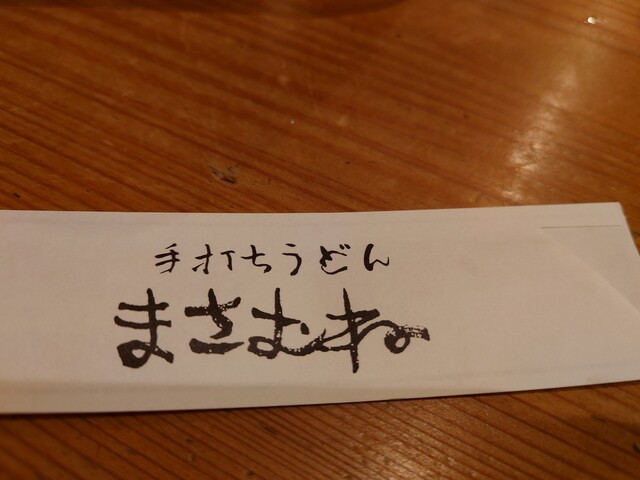 手打ちうどん
まさむね